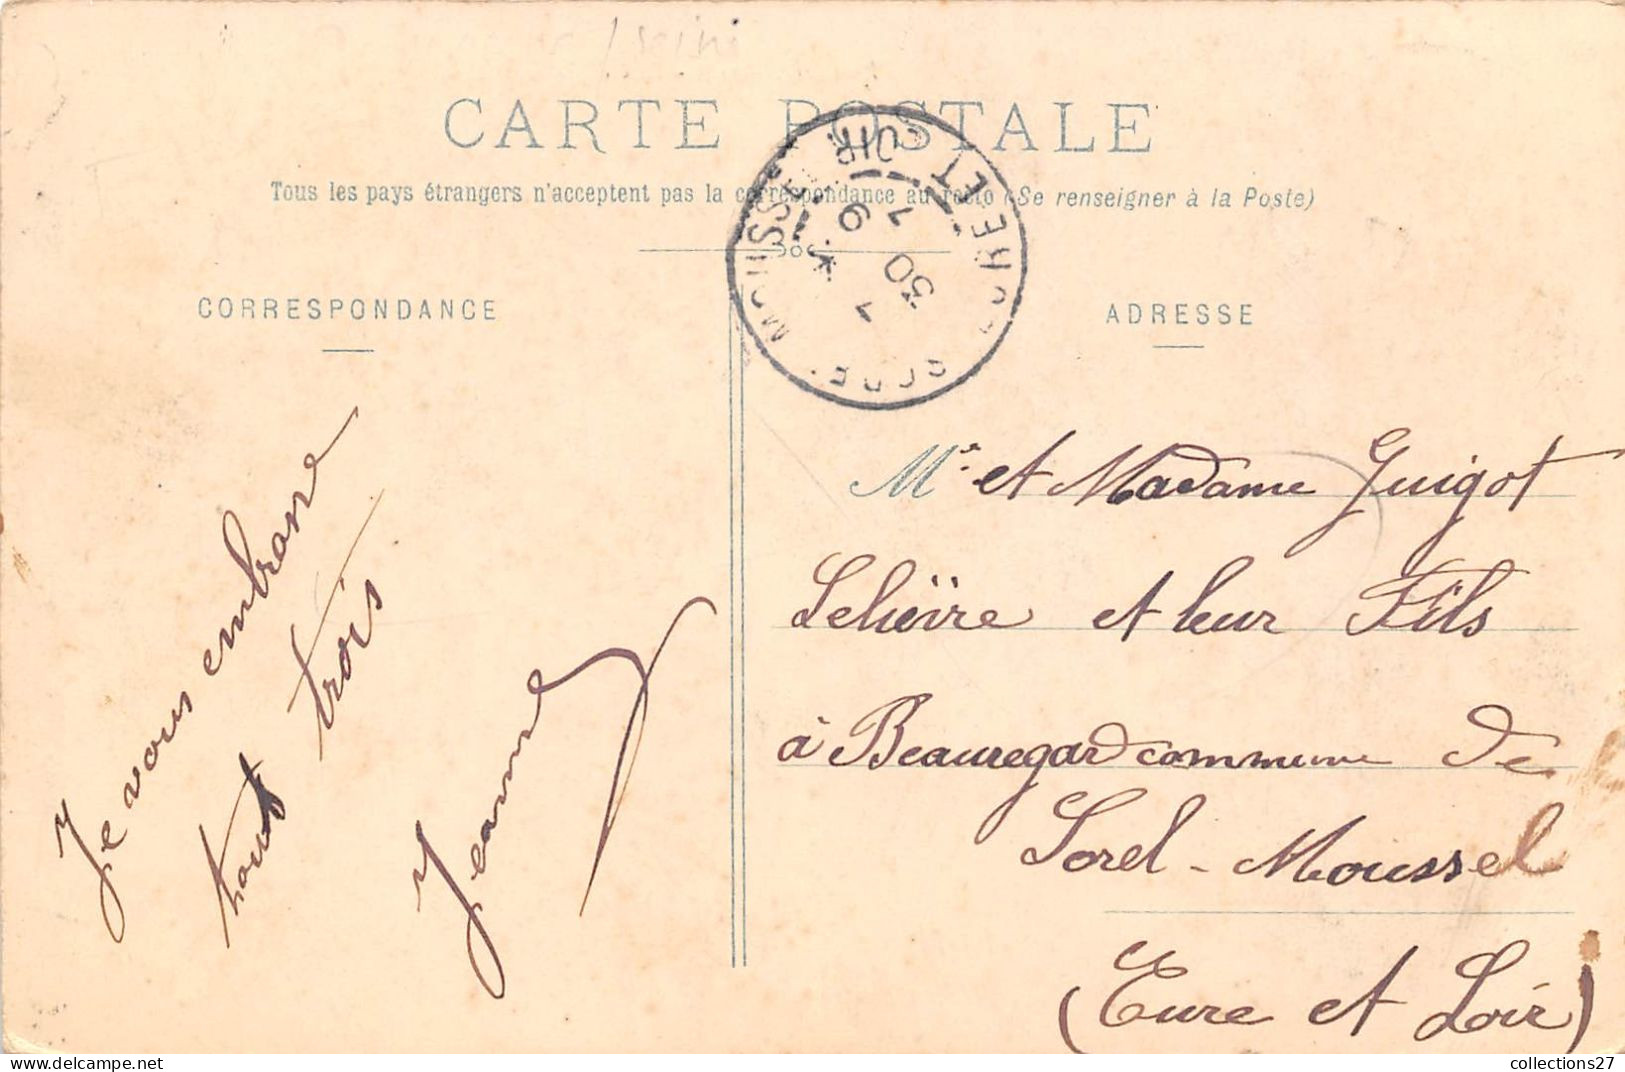 CARTE POSTALE
Tous les pays étrangers n'acceptent pas la correspondance au recto (Se renseigner à la Poste)
CORRESPONDANCE
ADRESSE
Je vous embrasse
tous trois
Jeanne
Mr et Madame Guigot
et leur Fils
à Beauregard commune de
Sorel-Moussel
(Eure et Loir)
SOREL MOUSSEL
EURE ET LOIR
collections27